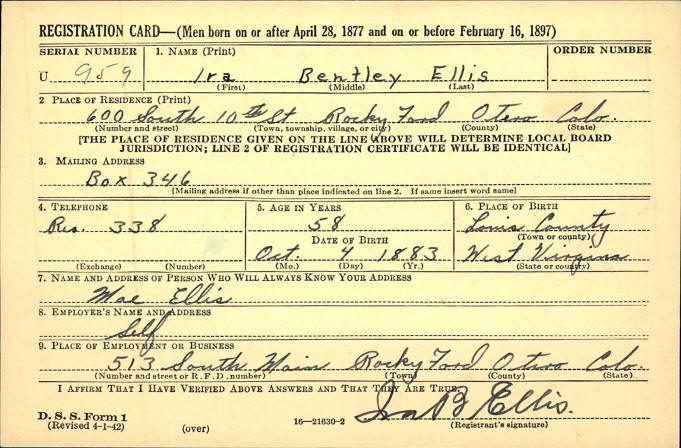 REGISTRATION CARD—(Men born on or after April 28, 1877 and on or before February 16, 1897)
SERIAL NUMBER 1. NAME (Print) ORDER NUMBER
U 959 Ira Bentley Ellis
(First) (Middle) (Last)
2. PLACE OF RESIDENCE (Print)
600 South 10th St Rocky Ford Otero Colo.
(Number and street) (Town, township, village, or city) (County) (State)
[THE PLACE OF RESIDENCE GIVEN ON THE LINE ABOVE WILL DETERMINE LOCAL BOARD
JURISDICTION; LINE 2 OF REGISTRATION CERTIFICATE WILL BE IDENTICAL]
3. MAILING ADDRESS
Box 346
[Mailing address if other than place indicated on line 2. If same insert word same]
4. TELEPHONE 5. AGE IN YEARS 6. PLACE OF BIRTH
Res. 338 58 Louis County
DATE OF BIRTH (Town or county)
Oct. 4 1883 West Virginia
(Exchange) (Number) (Mo.) (Day) (Yr.) (State or country)
7. NAME AND ADDRESS OF PERSON WHO WILL ALWAYS KNOW YOUR ADDRESS
Mae Ellis
8. EMPLOYER'S NAME AND ADDRESS
Self
9. PLACE OF EMPLOYMENT OR BUSINESS
513 South Main Rocky Ford Otero Colo.
(Number and street or R. F. D. number) (Town) (County) (State)
I AFFIRM THAT I HAVE VERIFIED ABOVE ANSWERS AND THAT THEY ARE TRUE.
Ira B Ellis.
D. S. S. Form 1
(Revised 4-1-42) (over) 16—21630-2 (Registrant's signature)